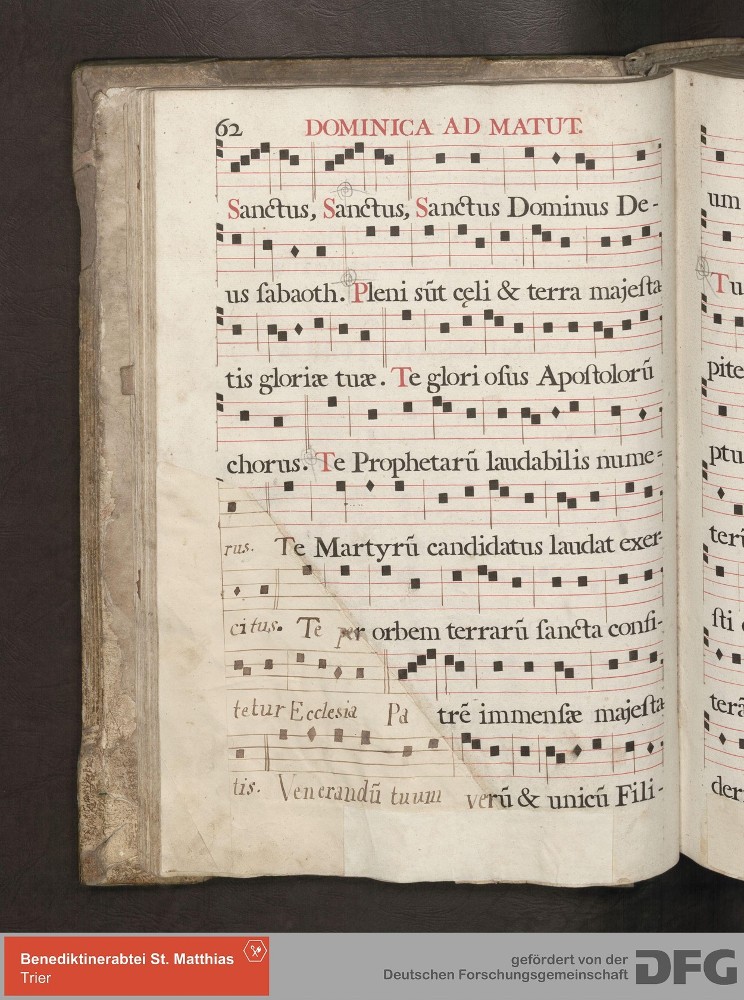 62 DOMINICA AD MATUT.
Sanctus, Sanctus, Sanctus Dominus De-
us ſabaoth. Pleni sūt cęli & terra majeſta
tis gloriæ tuæ. Te glori oſus Apoſtolorū
chorus. Te Prophetarū laudabilis nume=
rus. Te Martyrū candidatus laudat exer-
citus. Te per orbem terrarū ſancta confi-
tetur Ecclesia Pa trē immenſæ majeſta
tis. Venerandū tuum verū & unicū Fili-
um
Tu
pite
ptu
terū
ſti
terā
der
Benediktinerabtei St. Matthias
Trier
gefördert von der
Deutschen Forschungsgemeinschaft
DFG